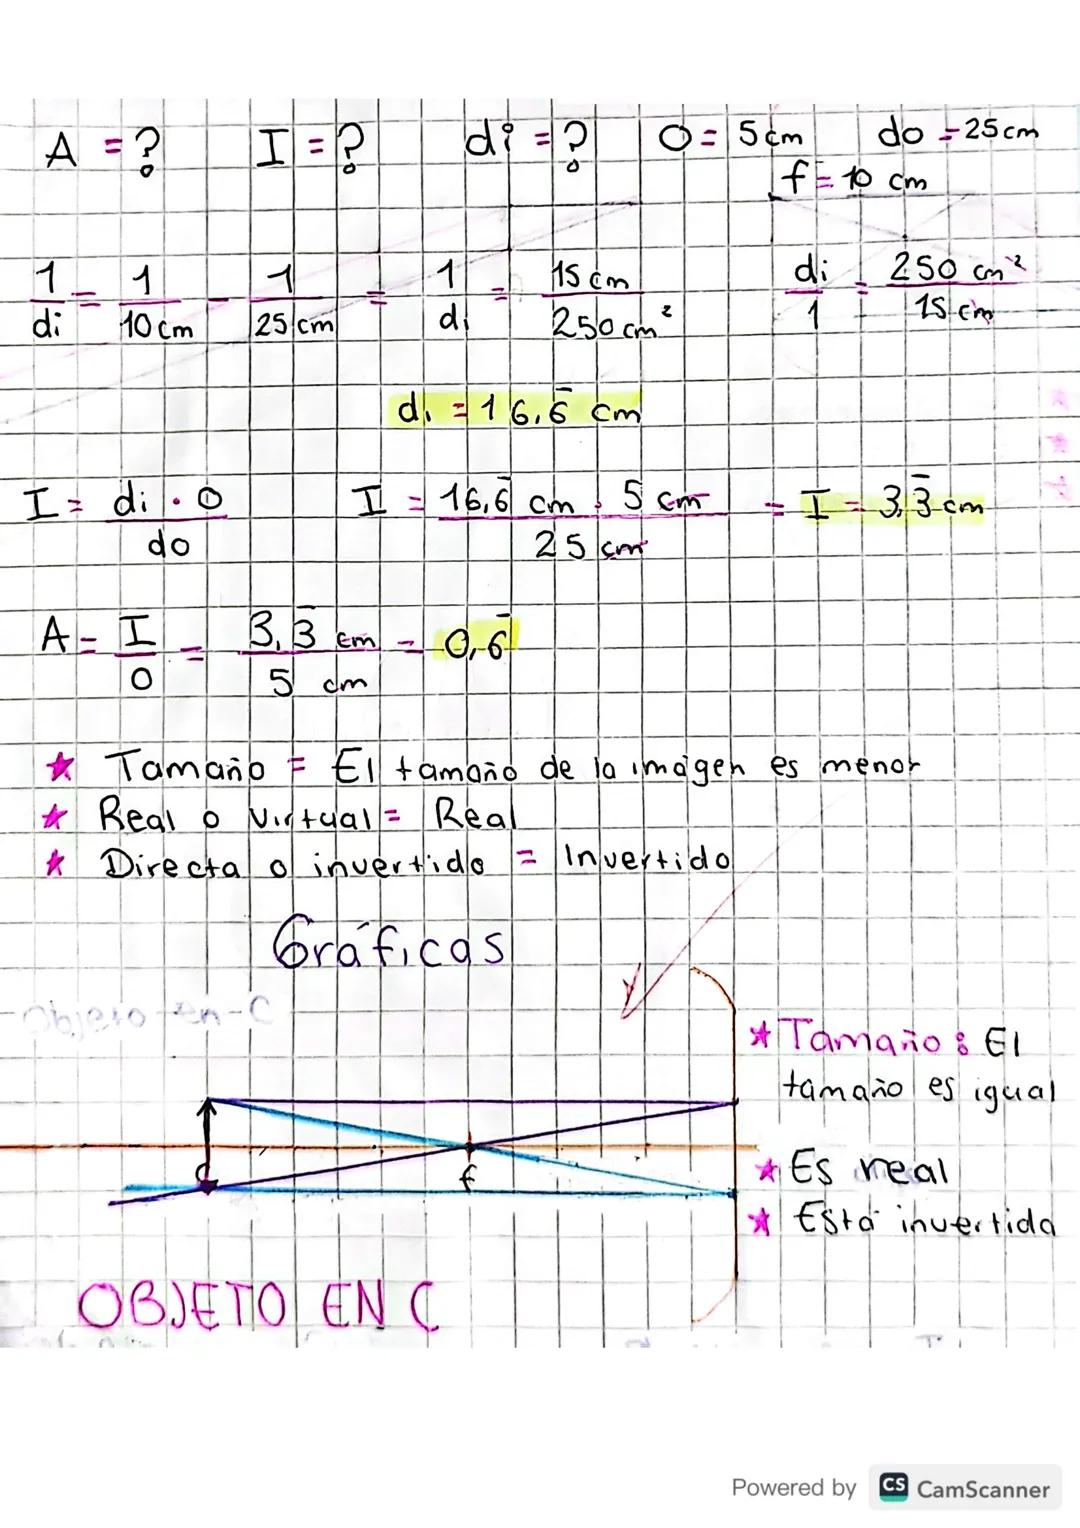 A = ? I = ? di = ? O = 5 cm do = 25 cm
f = 10 cm
1/di = 1/10 cm - 1/25 cm = 1/di = 15 cm/250 cm² di/1 = 250 cm²/15 cm
di = 16,6̅ cm
I = di · O/do I = 16,6̅ cm . 5 cm/25 cm = I = 3,3̅ cm
A = I/O = 3,3̅ cm/5 cm = 0,6̅
★ Tamaño = El tamaño de la imágen es menor
★ Real o Virtual = Real
★ Directa o invertido = Invertido
Gráficas
Objeto en C
★ Tamaño : El
tamaño es igual
C
f
★ Es real
★ Está invertida
OBJETO EN C
Powered by CS CamScanner